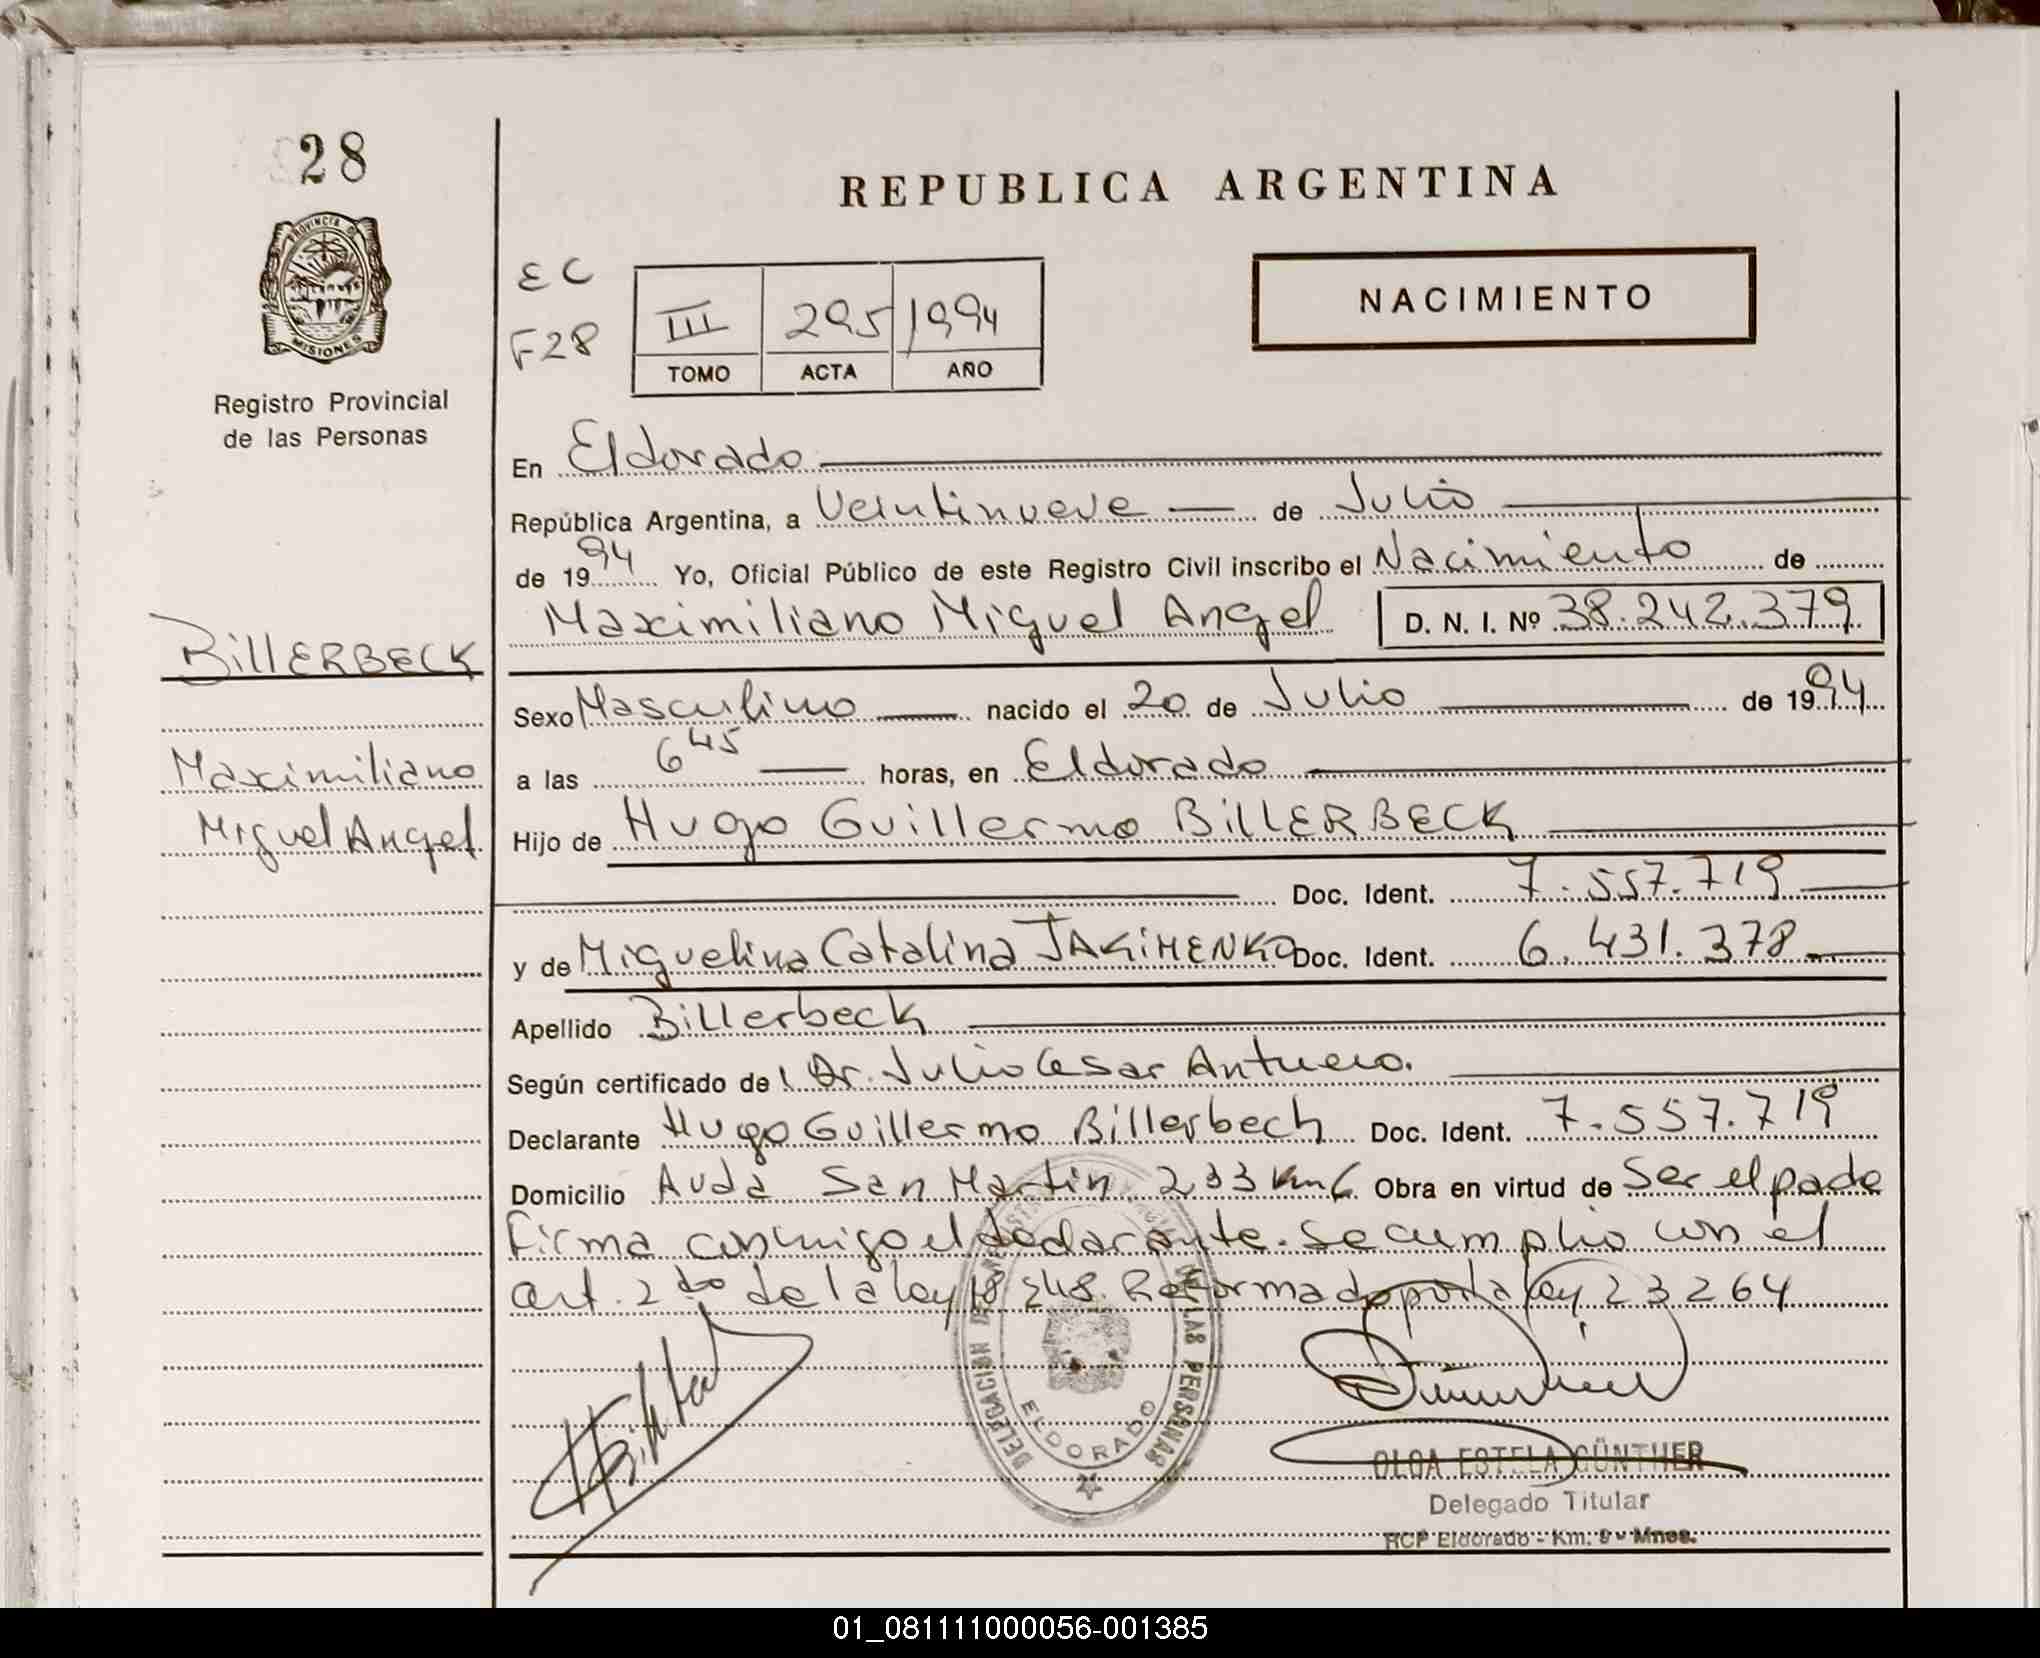 28
REPUBLICA ARGENTINA
PROVINCIA DE
MISIONES
Registro Provincial
de las Personas
EC
F28
III 295 1994
TOMO ACTA AÑO
NACIMIENTO
En Eldorado
República Argentina, a Veintinueve de Julio
de 1994 Yo, Oficial Público de este Registro Civil inscribo el Nacimiento de
Maximiliano Miguel Angel D. N. I. Nº 38.242.379
BillERBECK
Sexo Masculino nacido el 20 de Julio de 1994
Maximiliano
a las 6 45 horas, en Eldorado
Miguel Angel
Hijo de Hugo Guillermo BillERBECK
Doc. Ident. 7.557.719
y de Miguelina Catalina JAKiMENKO Doc. Ident. 6.431.378
Apellido Billerbeck
Según certificado de l Dr. Julio Cesar
Declarante Hugo Guillermo Billerbech Doc. Ident. 7.557.719
Domicilio Avda San Martin 233 Km 6 Obra en virtud de Ser el padre
Firma conmigo el declarante. Se cumplio con el
art. 2do de la ley 18.248. Reformado por la ley 23264
DELEGACION DE LAS PERSONAS
ELDORADO
OLGA ESTELA GÜNTHER
Delegado Titular
RCP Eldorado - Km. 9 - Mnes.
01_081111000056-001385